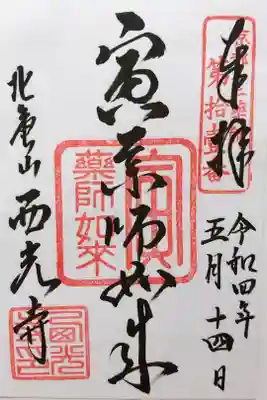 奉拝
第拾壹番
令和四年
五月十四日
寅薬師如来
薬師如来
北亀山
西光寺